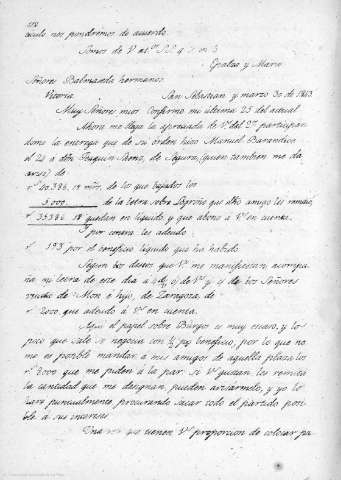 ocurra nos pondremos de acuerdo.
Somos de V. at.os S.S. q. b. s. m.
Gpaloa y Mario
Señores Balmaseda hermanos
Vitoria San Sebastian y marzo 30 de 1863
Muy Señores mios: Confirmo mi ultima 25 del actual
Ahora me llega la apreciada de Vs. del 27 participan
dome la entrega que de su orden hizo Manuel Barandica
el 25 a don Joaquin Saenz, de Segura, (quien tambien me da
aviso) de
r.s 40.386, 18 mrs, de los que bajados los
5.000 de la letra sobre Logroño que dho amigo les remitió,
r.s 35386 18 quedan en liquido, y que abono á Vs. en cuenta.
Y por contra les adeudo
r.s 193 por el beneficio liquido que ha habido.
Segun los deseos que Vs. me manifiestan acompa
ño mi letra de este dia á 4 d/ de Vs. y de los Señores
viuda de Mon é hijo, de Zaragoza, de
r.s 2000, que adeudo á Vs. en cuenta.
Aqui el papel sobre Burgos es muy escaso, y lo
poco que sale se negocia con ½ p% beneficio, por lo que no
me es posible mandar a mis amigos de aquella plaza los
r.s 8000 que me piden á la par. Si Vs. gustan les remita
la cantidad que me designan, pueden avisármelo, y yo lo
haré puntualmente, procurando sacar todo el partido posi
ble á sus intereses.
Una vez que tienen Vs. proporcion de colocar pa